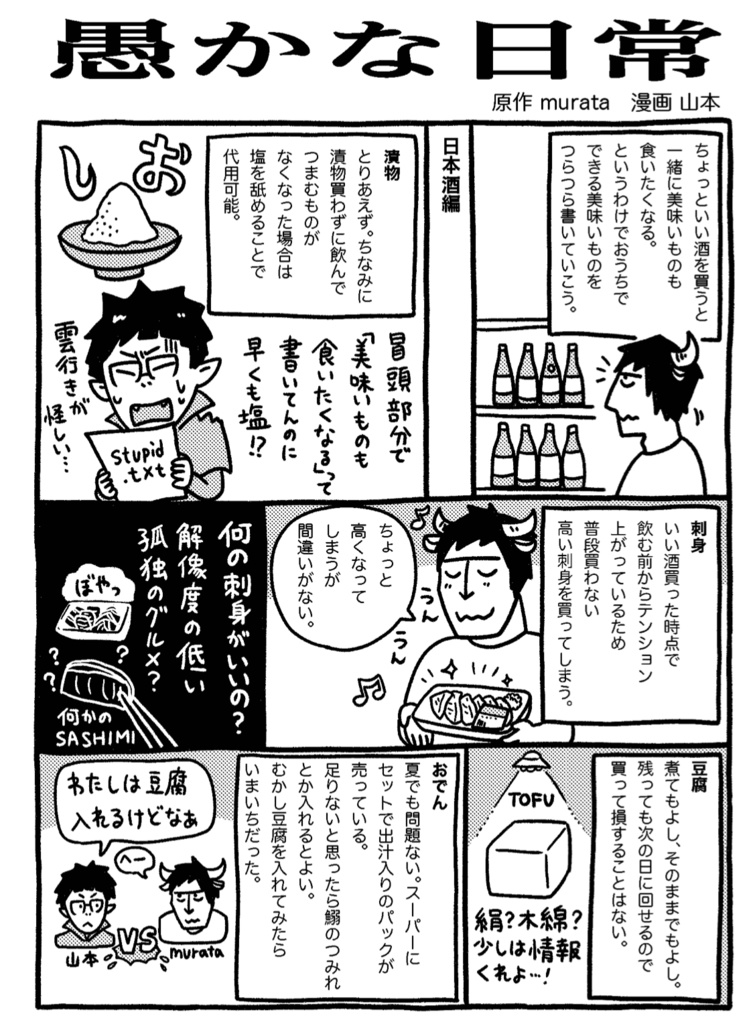 愚かな日常
原作 murata　漫画 山本
ちょっといい酒を買うと
一緒に美味いものも
食いたくなる。
というわけでおうちで
できる美味いものを
つらつら書いていこう。
日本酒編
漬物
とりあえず。ちなみに
漬物買わずに飲んで
つまむものが
なくなった場合は
塩を舐めることで
代用可能。
おしお
冒頭部分で
「美味いものも
食いたくなる」って
書いてんのに
早くも塩!?
雲行きが
怪しい…
stupid
.txt
刺身
いい酒買った時点で
飲む前からテンション
上がっているため
普段買わない
高い刺身を買ってしまう。
うん
うん
ちょっと
高くなって
しまうが
間違いがない。
何の刺身がいいの?
解像度の低い
孤独のグルメ?
ぼやっ
?
?
?
何かの
SASHIMI
豆腐
煮てもよし、そのままでもよし。
残っても次の日に回せるので
買って損することはない。
TOFU
絹?木綿?
少しは情報
くれよ…!
おでん
夏でも問題ない。スーパーに
セットで出汁入りのパックが
売っている。
足りないと思ったら鰯のつみれ
とか入れるとよい。
むかし豆腐を入れてみたら
いまいちだった。
わたしは豆腐
入れるけどなぁ
へー
山本
VS
murata